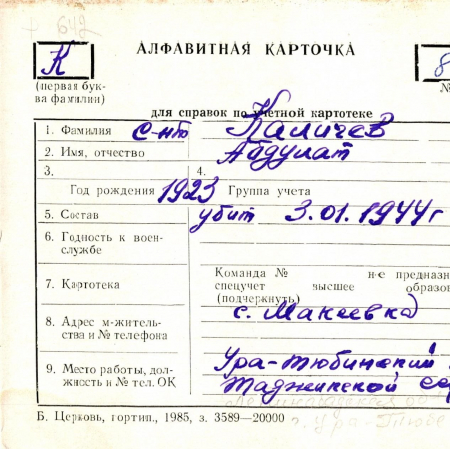 + 642
К
АЛФАВИТНАЯ КАРТОЧКА
8
(первая бук-
ва фамилии)
№
для справок по учетной картотеке
1. Фамилия с-нт Каличев
2. Имя, отчество Абдулат
3. 4.
Год рождения 1923 Группа учета
5. Состав убит 3.01.1944г
6. Годность к воен-
службе
Команда № н-е предназн
7. Картотека спецучет высшее образо
(подчеркнуть)
8. Адрес м-житель-
ства и № телефона
с. Макеевка
9. Место работы, дол-
жность и № тел. ОК
Ура-тюбинский
Таджикской сср
Ленинабадская обл
г. Ура-Тюбе
Б. Церковь, гортип., 1985, з. 3589—20000